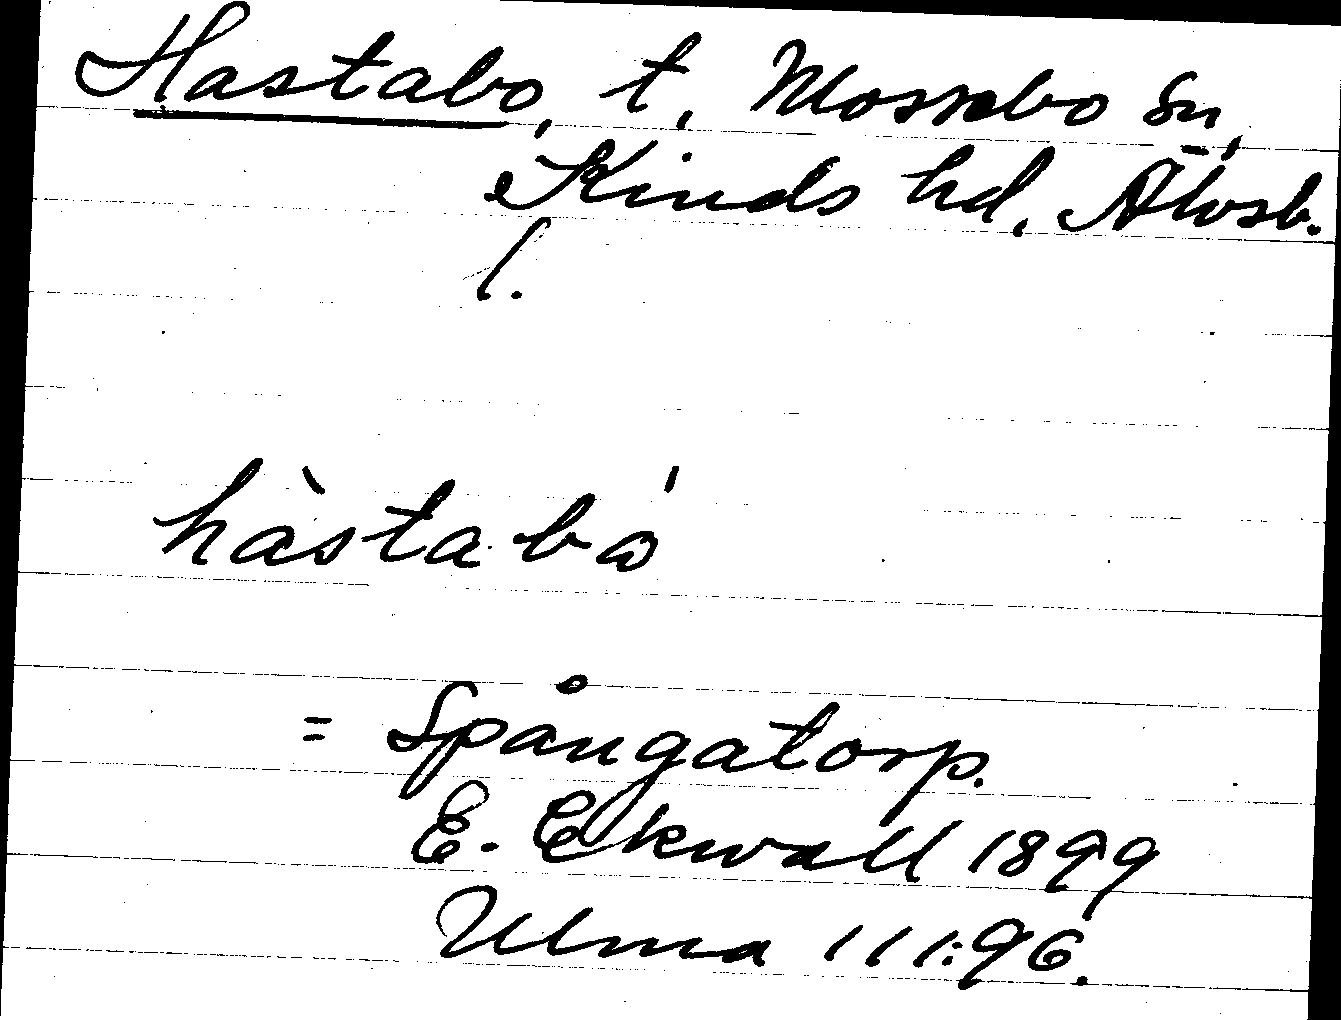 Hastabo, t. Mossebo sn,
Kinds hd. Älvsb.
l.
hàstabó
= Spångatorp.
E. Ekwall 1899
Ulma 111:96.